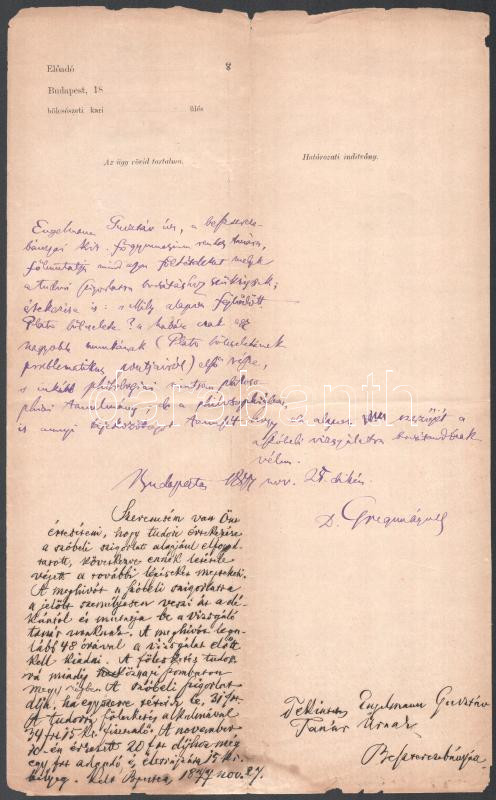 Előadó
8
Budapest, 18
bölcsészeti kari ülés
Az ügy rövid tartalma.
Határozati indítvány.
Engelmann Gusztáv úr, a besztercze-
bányai kir. főgymnasium rendes tanára,
fölmutatja mind azon föltételeket melyek
a tudori szigorlatra bocsátáshoz szükségesek;
értekezése is: »Mily alapon fejlődött
Plato bölcselete? a habár csak egy
nagyobb munkának (Plato bölcseletének
problematikus pontjairól) első része,
s inkább philologiai mintsem philoso-
phiai tanulmány, de a philosophiában
is annyi tájékozottságot tanusít hogy ez alapon szerzőjét a
szóbeli vizsgálatra bocsátandónak
vélem.
Budapesten 1877 nov. 25. dikén.
D. Greguss Ágost
Szerencsém van Önt
értesíteni, hogy tudori értekezése
a szóbeli szigorlat alapjául elfogad-
tatott, következve ennek
végett a további lépéseket megteheti.
A meghívót a szóbeli szigorlatra
a jelölt személyesen veszi át a dé-
kántól és mutatja be a vizsgáló
tanár uraknak. A meghívót lega-
lább 48 órával a vizsgálat előtt
kell kiadni. A fölesketés tudor-
rá mindég szombaton
megy végbe. A szóbeli szigorlat
díja, ha egyszerre teszi le, 31 frt
A tudorrá fölesketés alkalmával
34 frt 15 kr. fizetendő. A november
10-én érkezett 20 frt díjhoz még
egy frt adandó és 15 kr.
bélyeg. Kelt Bpesten, 1877 nov. 27.
Tekintetes Engelmann Gusztáv
Tanár Úrnak
Beszterczebánya